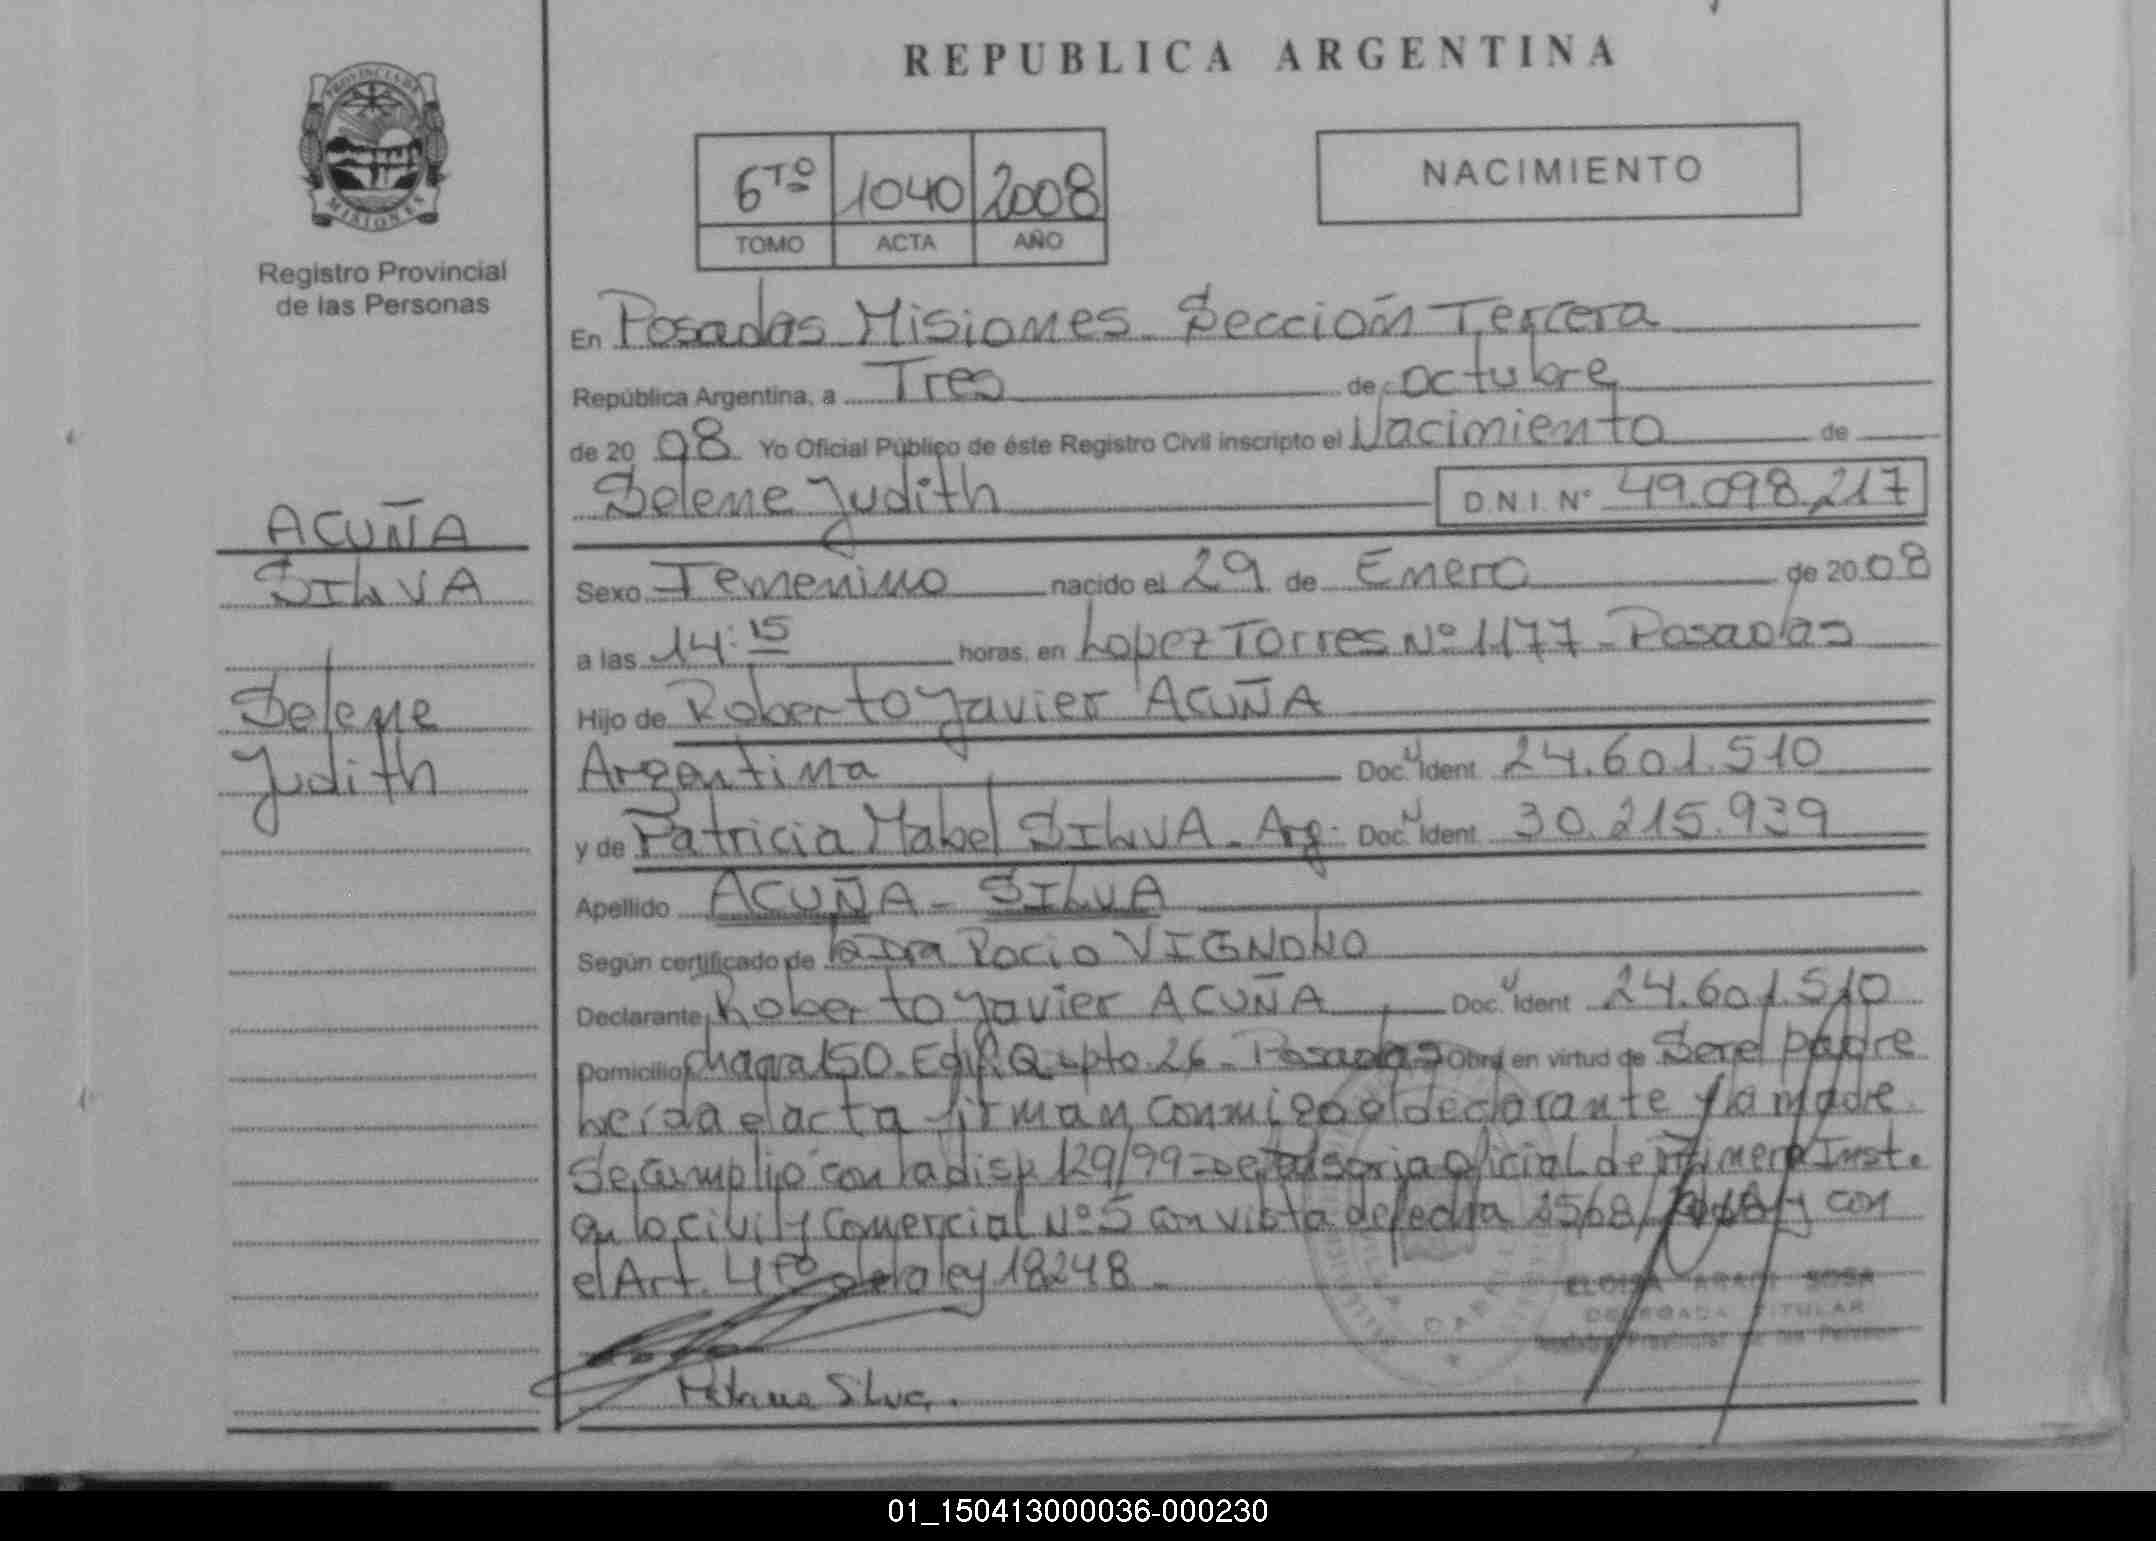 REPUBLICA ARGENTINA
PROVINCIA DE
MISIONES
Registro Provincial
de las Personas
6TO 1040 2008
TOMO ACTA AÑO
NACIMIENTO
En Posadas Misiones - Sección Tercera
República Argentina, a Tres de octubre
de 20 08 Yo Oficial Público de éste Registro Civil inscripto el Nacimiento de
Selene Judith D.N.I. Nº 49.098.217
ACUÑA
SILVA
Selene
Judith
Sexo Femenino nacido el 29 de Enero de 20 08
a las 14:15 horas, en Lopez Torres Nº 1177 - Posadas
Hijo de Roberto Javier ACUÑA
Argentina Doc. Ident 24.601.510
y de Patricia Mabel SILVA - Arg. Doc. Ident 30.215.939
Apellido ACUÑA - SILVA
Según certificado de la Dra Rocio VIGNOLO
Declarante Roberto Javier ACUÑA Doc. Ident 24.601.510
Domicilio chacra 150 - Edif. Q - pto. 26 - Posadas Obra en virtud de Ser el padre
Leída el acta firman conmigo el declarante y la madre.
Se cumplio con la disp 129/99 - Defensoria oficial de Primera Inst.
en lo civil y Comercial Nº 5 con vista de fecha y con
el Art. 4to de la ley 18248 -
ELOISA SOSA
DELEGADA TITULAR
Registro Provincial de las Personas
Silva.
01_150413000036-000230